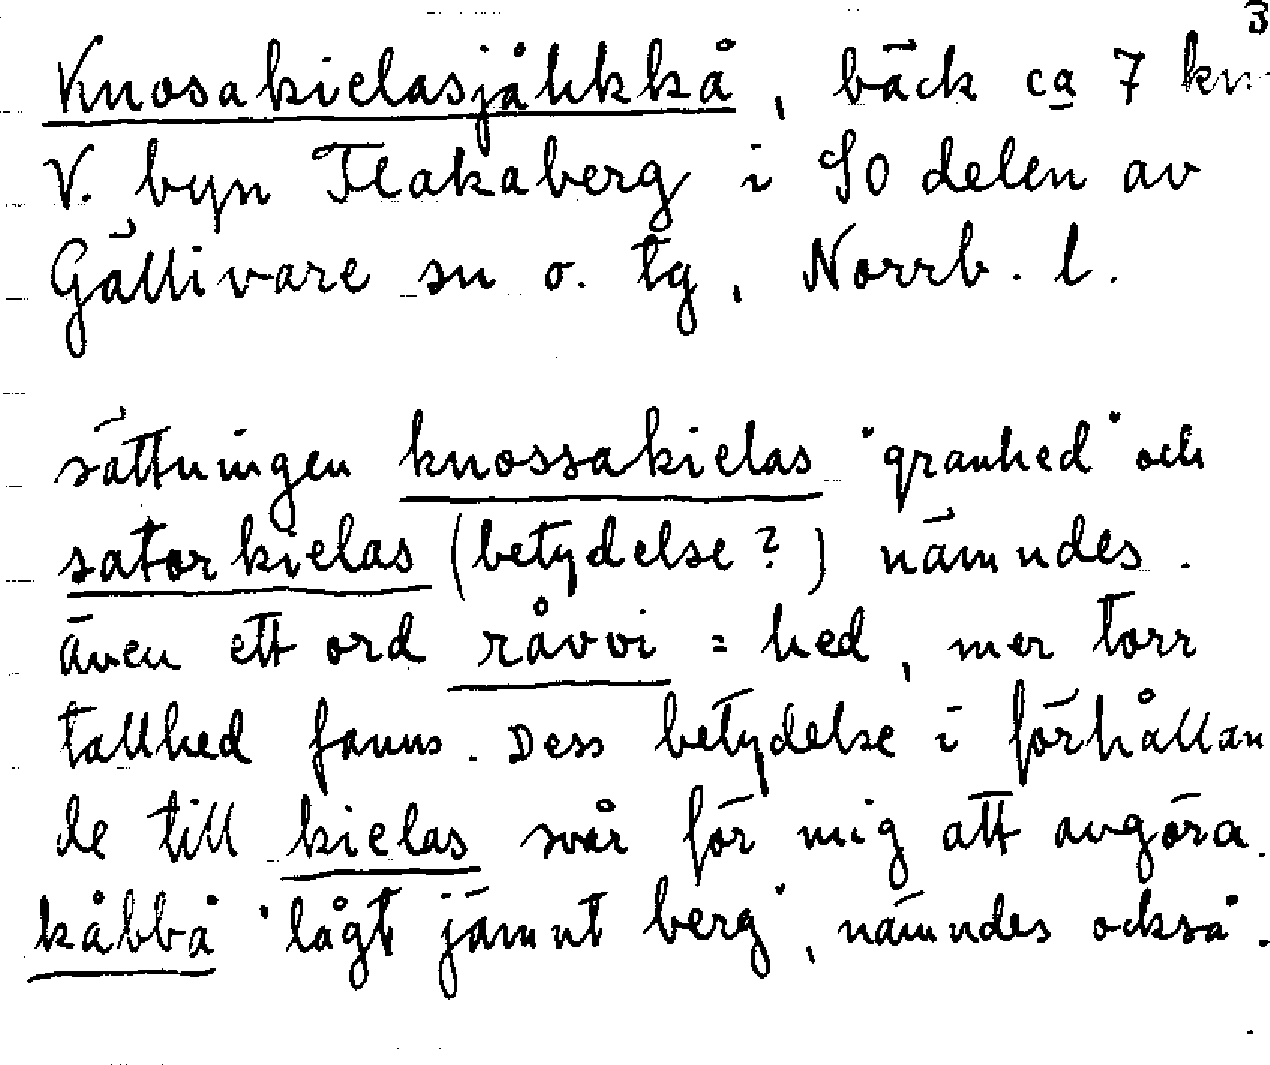 3
Knosakielasjåhkkå, bäck ca 7 km
V. byn Flakaberg i SO delen av
Gällivare sn o. tg, Norrb. l.
sättningen knossakielas "granhed" och
satorkielas (betydelse?) nämndes.
även ett ord råvvi = hed, mer torr
tallhed fanns. Dess betydelse i förhållan
de till kielas svår för mig att avgöra.
kåbbå "lågt jämnt berg", nämndes också.